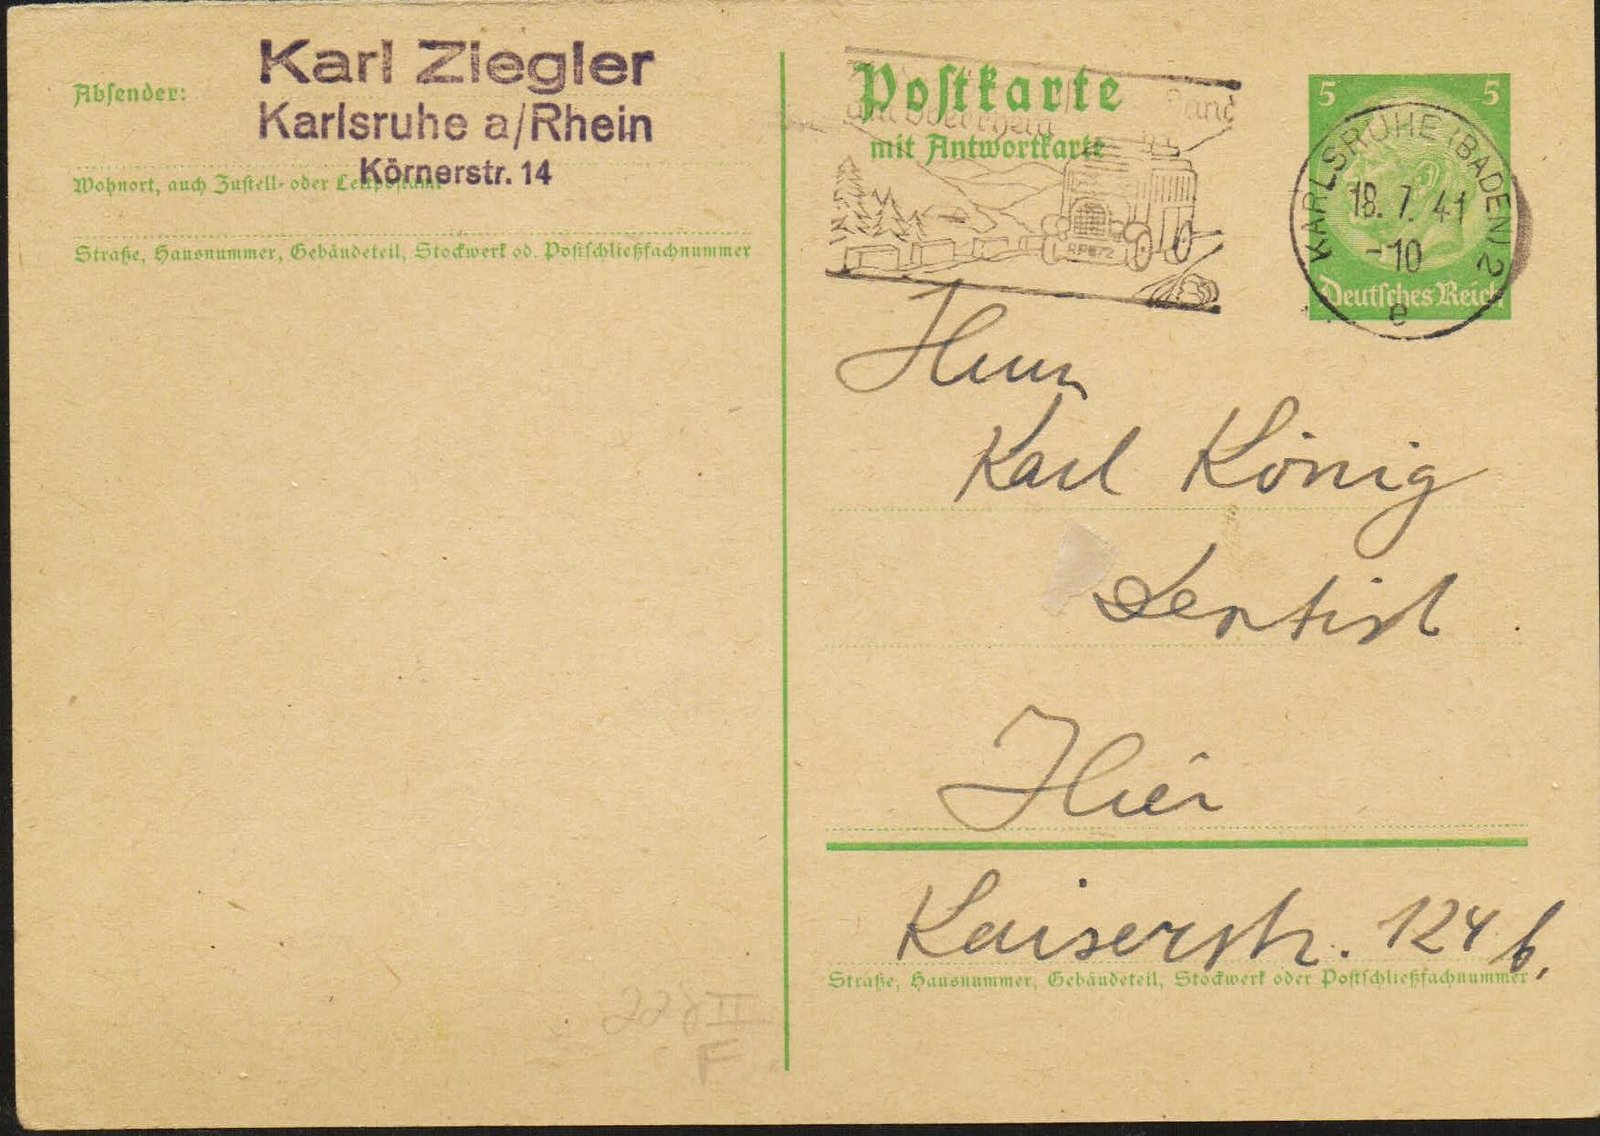 Karl Ziegler
Karlsruhe a/Rhein
Körnerstr. 14
Absender:
Wohnort, auch Zustell- oder Leitpostamt
Straße, Hausnummer, Gebäudeteil, Stockwerk od. Postschließfachnummer
Postkarte
mit Antwortkarte
5 5
KARLSRUHE (BADEN) 2
18.7.41
-10
e
Deutsches Reich
Herrn
Karl König
Dentist
Hier
Kaiserstr. 124 b,
Straße, Hausnummer, Gebäudeteil, Stockwerk oder Postschließfachnummer
228 II
F